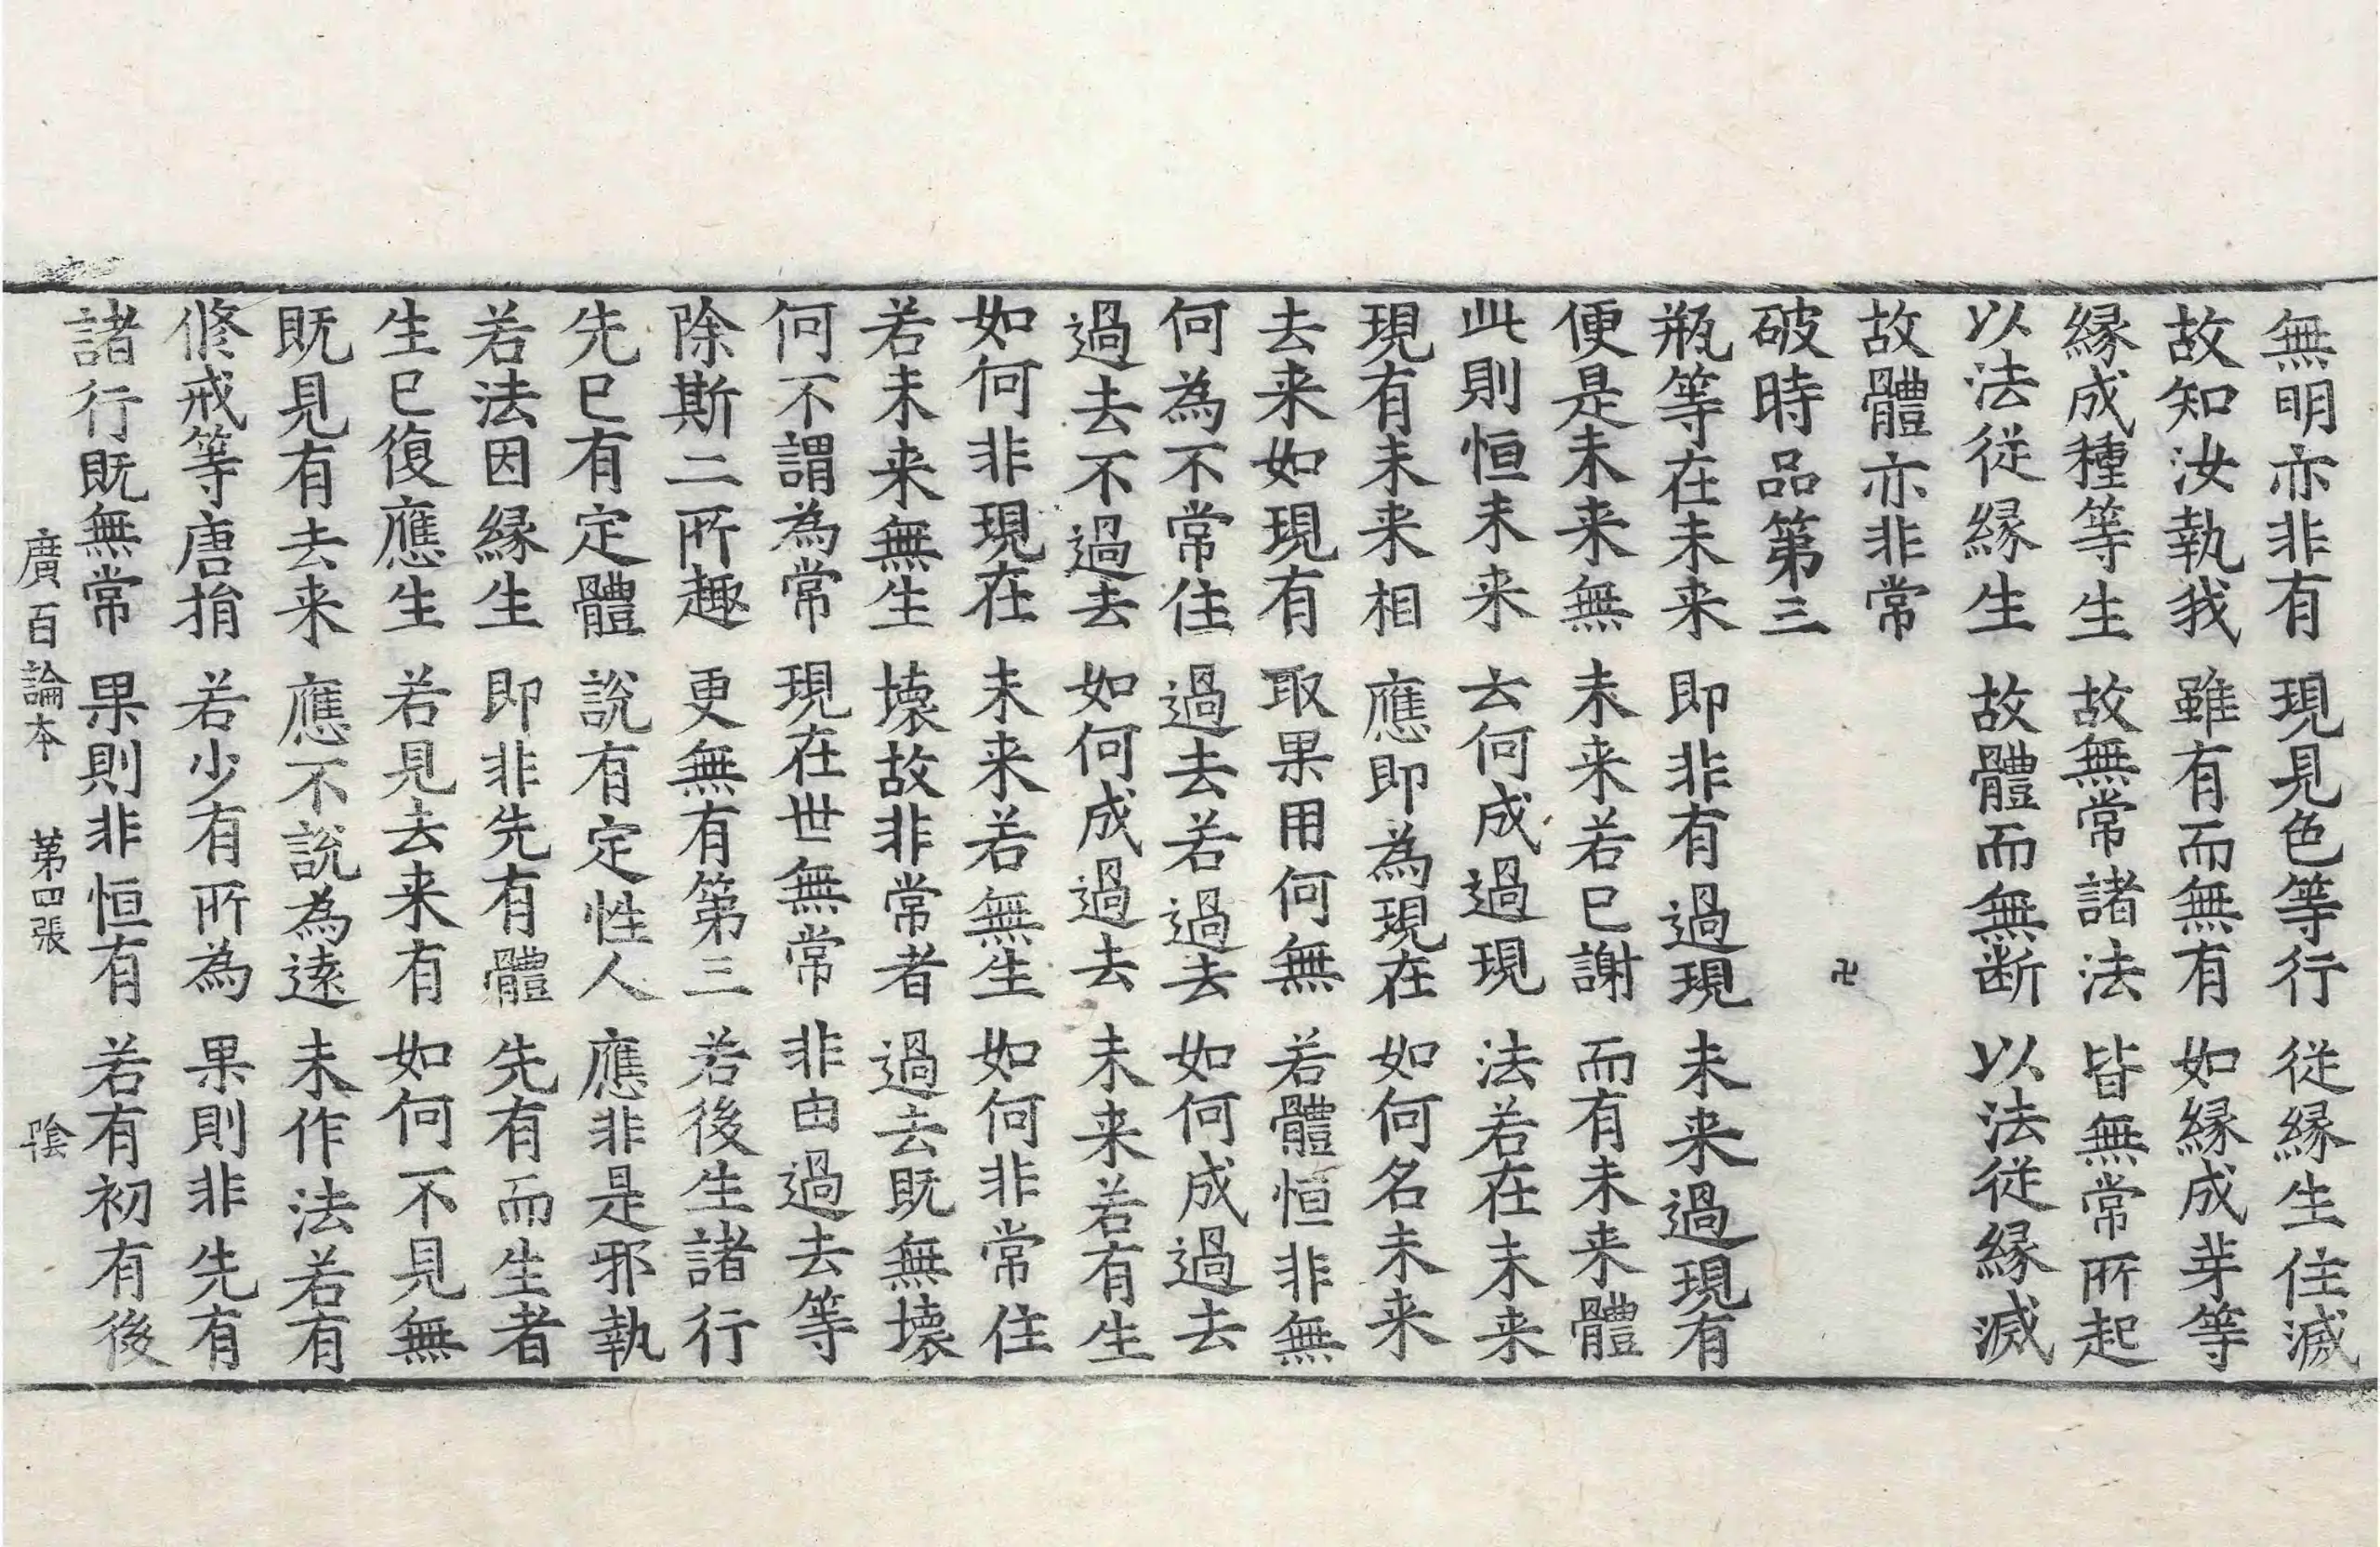 無明亦非有　現見色等行　從縁生住滅
故知汝執我　雖有而無有　如縁成芽等
縁成種等生　故無常諸法　皆無常所起
以法從縁生　故體而無断　以法從縁滅
故體亦非常
破時品第三　卍
瓶等在未来　即非有過現　未来過現有
便是未来無　未来若已謝　而有未来體
此則恒未来　去何成過現　法若在未来
現有未来相　應即為現在　如何名未来
去来如現有　取果用何無　若體恒非無
何為不常住　過去若過去　如何成過去
過去不過去　如何成過去　未来若有生
如何非現在　未来若無生　如何非常住
若未来無生　壊故非常者　過去既無壊
何不謂為常　現在世無常　非由過去等
除斯二所趣　更無有第三　若後生諸行
先已有定體　說有定性人　應非是邪執
若法因縁生　即非先有體　先有而生者
生已復應生　若見去来有　如何不見無
既見有去来　應不說為遠　未作法若有
修戒等唐捐　若少有所為　果則非先有
諸行既無常　果則非恒有　若有初有後
廣百論本　第四張　陰